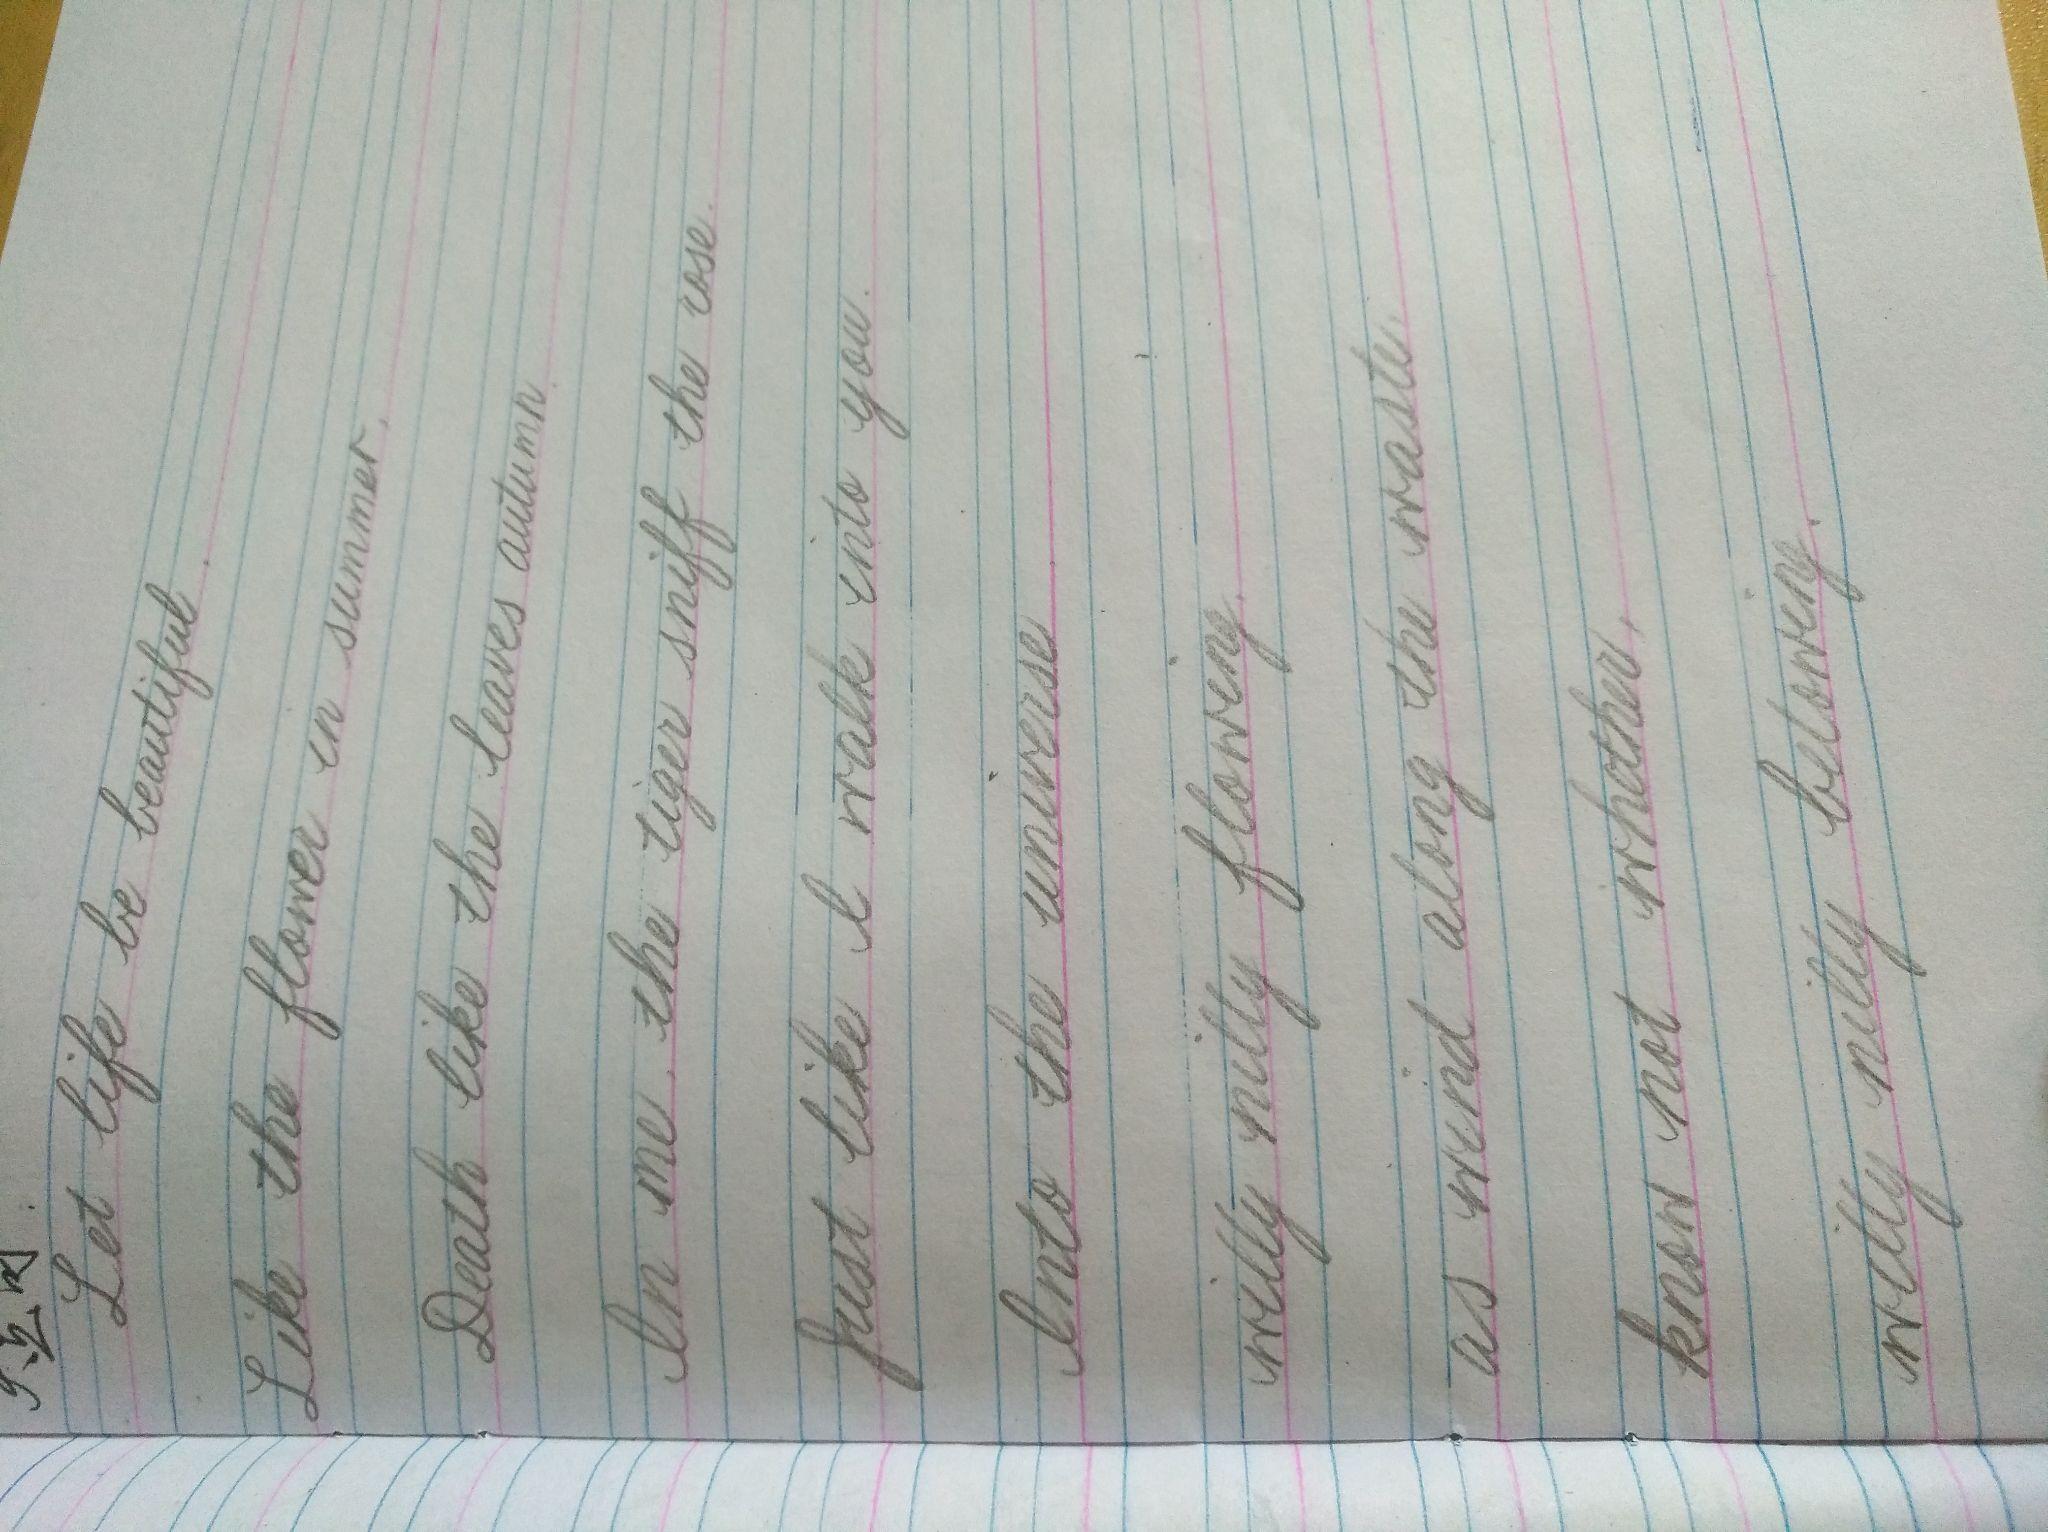 Let life be beautiful.
Like the flower in summer.
Death like the leaves autumn.
In me. the tiger sniff the rose.
Just like I walk into you.
Into the universe
willy nilly flowing.
as wind along the waste.
know not whether.
willy nilly belowing.